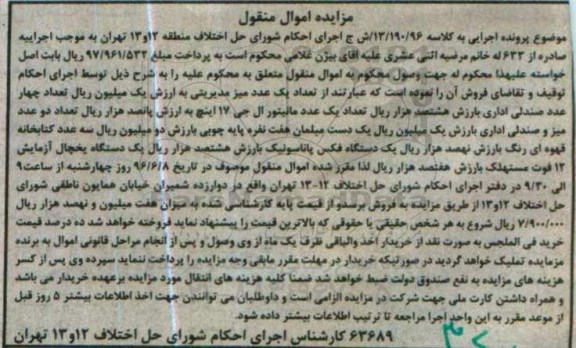 مزایده اموال منقول
موضوع پرونده اجرایی به کلاسه ۱۳/۱۹۰/۹۶/ش ح اجرای احکام شورای حل اختلاف منطقه ۱۲و۱۳ تهران به موجب اجراییه
صادره از ۶۳۳ له خانم مرضیه اثنی عشری علیه آقای بیژن غلامی محکوم است به پرداخت مبلغ ۹۷/۹۶۱/۵۳۲ ریال بابت اصل
خواسته علیهذا محکوم له جهت وصول محکوم به اموال منقول متعلق به محکوم علیه را به شرح ذیل توسط اجرای احکام
توقیف و تقاضای فروش آن را نموده است که عبارتند از تعداد یک عدد میز مدیریتی به ارزش یک میلیون ریال تعداد چهار
عدد صندلی اداری بارزش هشتصد هزار ریال تعداد یک عدد مانیتور ال جی ۱۷ اینچ به ارزش پانصد هزار ریال تعداد دو عدد
میز و صندلی اداری بارزش یک میلیون ریال یک دست مبلمان هفت نفره پایه چوبی بارزش دو میلیون ریال سه عدد کتابخانه
قهوه ای رنگ بارزش نهصد هزار ریال یک دستگاه فکس پاناسونیک بارزش هشتصد هزار ریال یک دستگاه یخچال آزمایش
۱۲ فوت مستهلک بارزش هفتصد هزار ریال لذا مقرر شده اموال منقول موصوف در تاریخ ۹۶/۶/۸ روز چهارشنبه از ساعت۹
الی ۹/۳۰ در دفتر اجرای احکام شورای حل اختلاف ۱۲-۱۳ تهران واقع در دوازرده شمیران خیابان همایون ناطقی شورای
حل اختلاف ۱۲و۱۳ از طریق مزایده به فروش برسد و از قیمت پایه کارشناسی شده به میزان هفت میلیون و نهصد هزار ریال
۷/۹۰۰/۰۰۰ ریال شروع به هر شخص حقیقی یا حقوقی که بالاترین قیمت را پیشنهاد نماید فروخته خواهد شد ده درصد قیمت
خرید فی المجلس به صورت نقد از خریدار اخذ والباقی ظرف یک ماه از وی وصول و پس از انجام مراحل قانونی اموال به برنده
مزمایده تملیک خواهد گردید در صورتیکه خریدار در مهلت مقرر مابقی وجه مزایده را پرداخت ننماید سپرده وی پس از کسر
هزینه های مزایده به نفع صندوق دولت ضبط خواهد شد ضمنا کلیه هزینه های انتقال مورد مزایده برعهده خریدار می باشد
و همراه داشتن کارت ملی جهت شرکت در مزایده الزامی است و داوطلبان می توانندن جهت اخذ اطلاعات بیشتر ۵ روز قبل
از موعد مقرر به این واحد اجرا مراجعه تا ترتیب اطلاعات بیشتر داده شود.
۶۳۶۸۹ کارشناس اجرای احکام شورای حل اختلاف ۱۲و۱۳ تهران